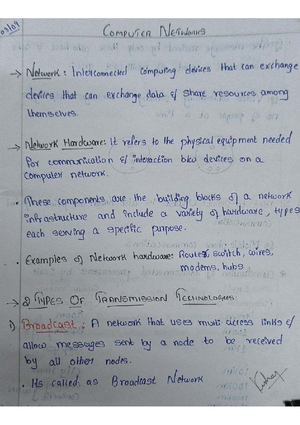 03/09
COMPUTER NETWORKS
→ Network : Interconnected computing devices that can exchange
devices that can exchange data & share resources among
themselves.
→ Network Hardware: It refers to the physical equipment needed
for communication & interaction btw devices on a
computer network.
• These components are the building blocks of a network
infrastructure and include a variety of hardware, types
each serving a specific purpose.
• Examples of Network hardware: Router, switch, wires,
modems, hubs
→ 2 TYPES OF TRANSMISSION TECHNOLOGIES
1) Broadcast : A network that uses multi access links &
allow messages sent by a node to be received
by all other nodes.
• Its called as Broadcast Network